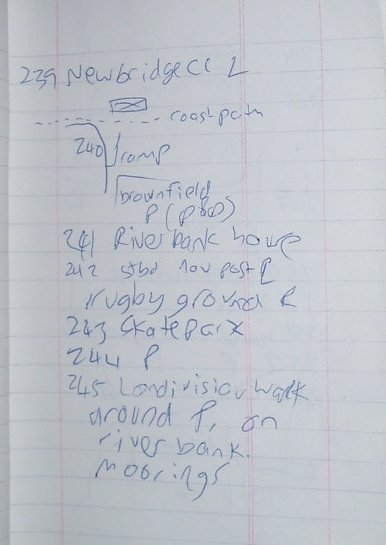 239 Newbridge CC L
coastpath
240 ramp
brownfield
P (P&D)
241 Riverbank house
242 stbd nav post L
rugby ground R
243 Skatepark
244 P
245 Landivisiau walk
around P, on
river bank.
Moorings